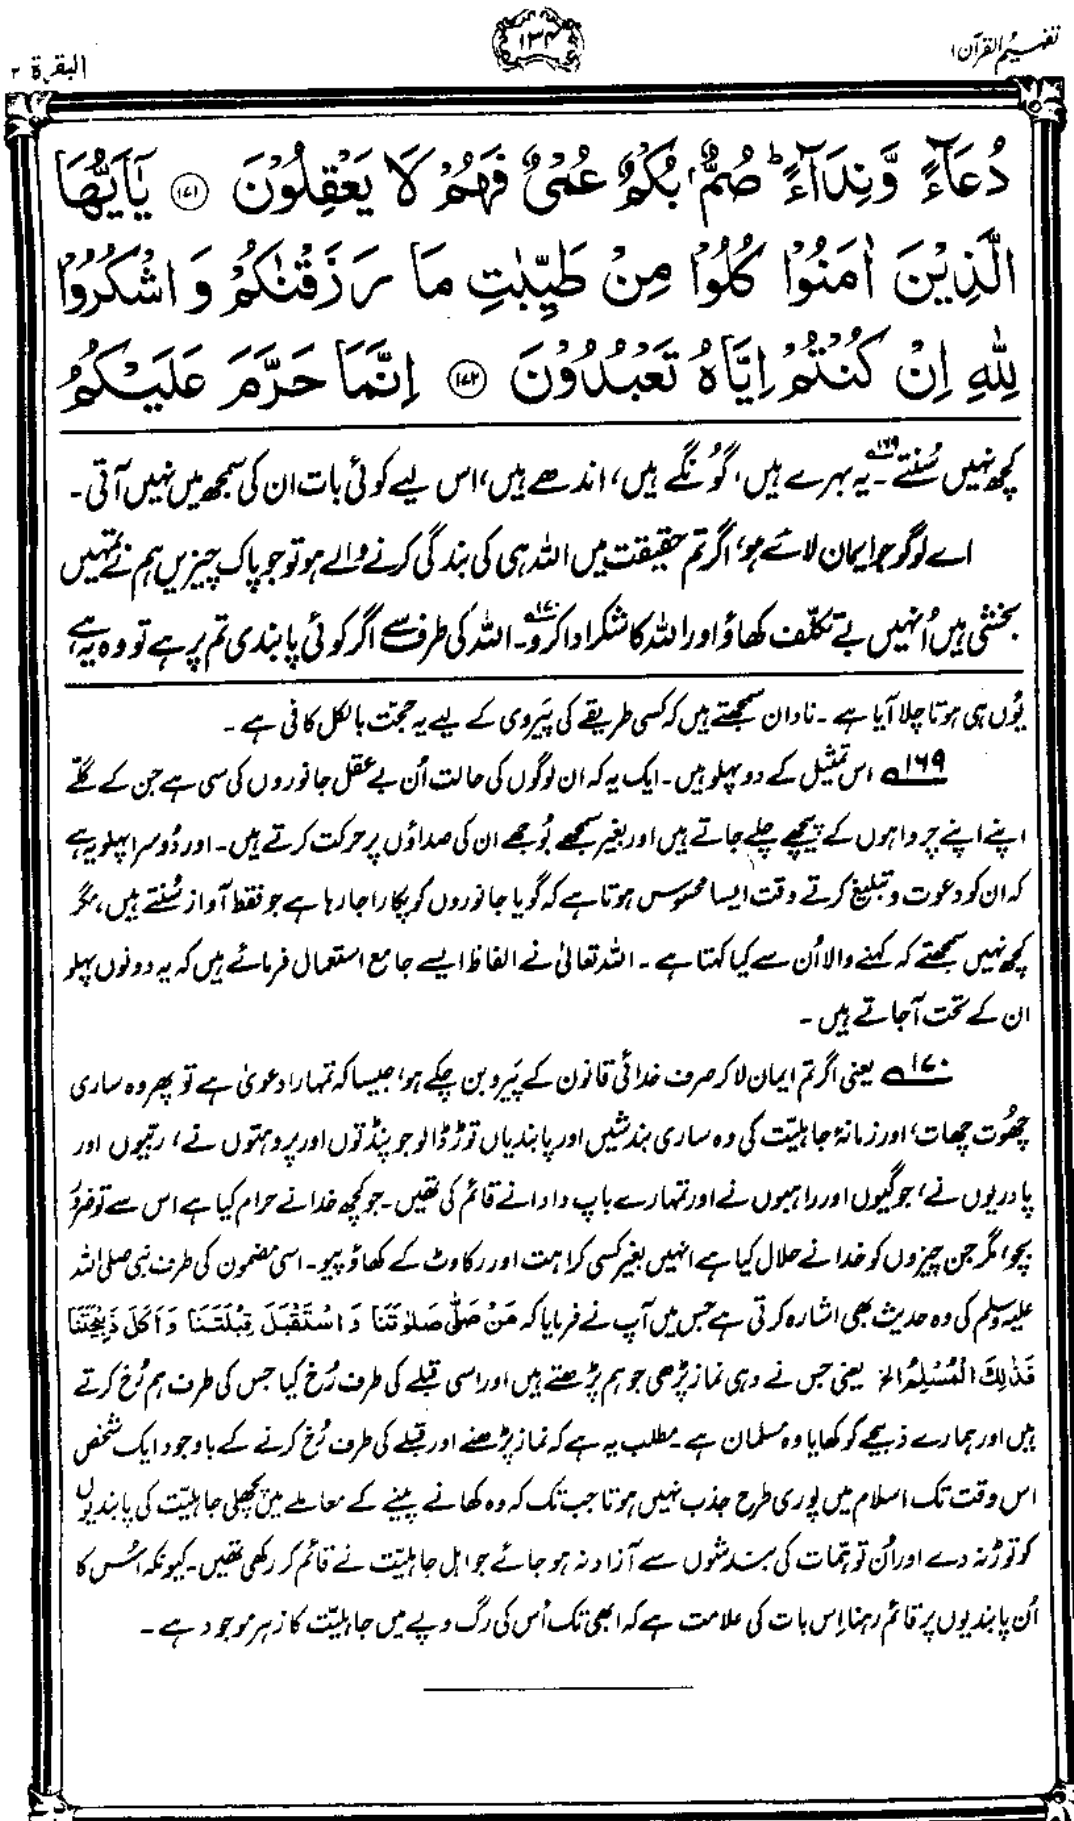 تفہیم القرآن ۱
۱۳۴
البقرۃ ۲
دُعَآءً وَّنِدَآءً ؕ صُمٌّۢ بُكْمٌ عُمْیٌ فَهُمْ لَا یَعْقِلُوْنَ ﴿۱۷۱﴾ یٰۤاَیُّهَا
الَّذِیْنَ اٰمَنُوْا كُلُوْا مِنْ طَیِّبٰتِ مَا رَزَقْنٰكُمْ وَ اشْكُرُوْا
لِلّٰهِ اِنْ كُنْتُمْ اِیَّاهُ تَعْبُدُوْنَ ﴿۱۷۲﴾ اِنَّمَا حَرَّمَ عَلَیْكُمُ
کچھ نہیں سُنتے۱۶۹؎۔ یہ بہرے ہیں، گونگے ہیں، اندھے ہیں، اس لیے کوئی بات ان کی سمجھ میں نہیں آتی۔
اے لوگو جو ایمان لائے ہو، اگر تم حقیقت میں اللہ ہی کی بندگی کرنے والے ہو تو جو پاک چیزیں ہم نے تمہیں
بخشی ہیں اُنہیں بے تکلّف کھاؤ اور اللہ کا شکر ادا کرو۱۷۰؎۔ اللہ کی طرف سے اگر کوئی پابندی تم پر ہے تو وہ یہ ہے
یُوں ہی ہوتا چلا آیا ہے۔ نادان سمجھتے ہیں کہ کسی طریقے کی پَیروی کے لیے یہ حجّت بالکل کافی ہے۔
۱۶۹؎ اس تمثیل کے دو پہلو ہیں۔ ایک یہ کہ ان لوگوں کی حالت اُن بے عقل جانوروں کی سی ہے جن کے گلّے
اپنے اپنے چرواہوں کے پیچھے چلے جاتے ہیں اور بغیر سمجھے بُوجھے ان کی صداؤں پر حرکت کرتے ہیں۔ اور دُوسرا پہلو یہ ہے
کہ ان کو دعوت و تبلیغ کرتے وقت ایسا محسوس ہوتا ہے کہ گویا جانوروں کو پکارا جا رہا ہے جو فقط آواز سُنتے ہیں، مگر
کچھ نہیں سمجھتے کہ کہنے والا اُن سے کیا کہتا ہے۔ اللہ تعالیٰ نے الفاظ ایسے جامع استعمال فرمائے ہیں کہ یہ دونوں پہلو
ان کے تحت آ جاتے ہیں۔
۱۷۰؎ یعنی اگر تم ایمان لا کر صرف خدائی قانون کے پَیرو بن چکے ہو، جیسا کہ تمہارا دعویٰ ہے تو پھر وہ ساری
چھُوت چھات، اور زمانۂ جاہلیّت کی وہ ساری بندشیں اور پابندیاں توڑ ڈالو جو پنڈتوں اور پروہتوں نے، ربّیوں اور
پادریوں نے، جوگیوں اور راہبوں نے اور تمہارے باپ دادا نے قائم کی تھیں۔ جو کچھ خدا نے حرام کیا ہے اس سے تو ضرور
بچو، مگر جن چیزوں کو خدا نے حلال کیا ہے انہیں بغیر کسی کراہت اور رکاوٹ کے کھاؤ پیو۔ اسی مضمون کی طرف نبی صلی اللہ
علیہ وسلم کی وہ حدیث بھی اشارہ کرتی ہے جس میں آپ نے فرمایا کہ مَنْ صَلّٰى صَلٰوتَنَا وَ اسْتَقْبَلَ قِبْلَتَنَا وَ اَكَلَ ذَبِیْحَتَنَا
فَذٰلِكَ الْمُسْلِمُ الخ یعنی جس نے وہی نماز پڑھی جو ہم پڑھتے ہیں اور اسی قبلے کی طرف رُخ کیا جس کی طرف ہم رُخ کرتے
ہیں اور ہمارے ذبیحے کو کھایا وہ مسلمان ہے۔ مطلب یہ ہے کہ نماز پڑھنے اور قبلے کی طرف رُخ کرنے کے باوجود ایک شخص
اس وقت تک اسلام میں پوری طرح جذب نہیں ہوتا جب تک کہ وہ کھانے پینے کے معاملے میں پچھلی جاہلیّت کی پابندیوں
کو توڑ نہ دے اور اُن توہّمات کی بندشوں سے آزاد نہ ہو جائے جو اہلِ جاہلیّت نے قائم کر رکھی تھیں۔ کیونکہ اُس کا
اُن پابندیوں پر قائم رہنا اِس بات کی علامت ہے کہ ابھی تک اُس کی رگ و پے میں جاہلیّت کا زہر موجود ہے۔